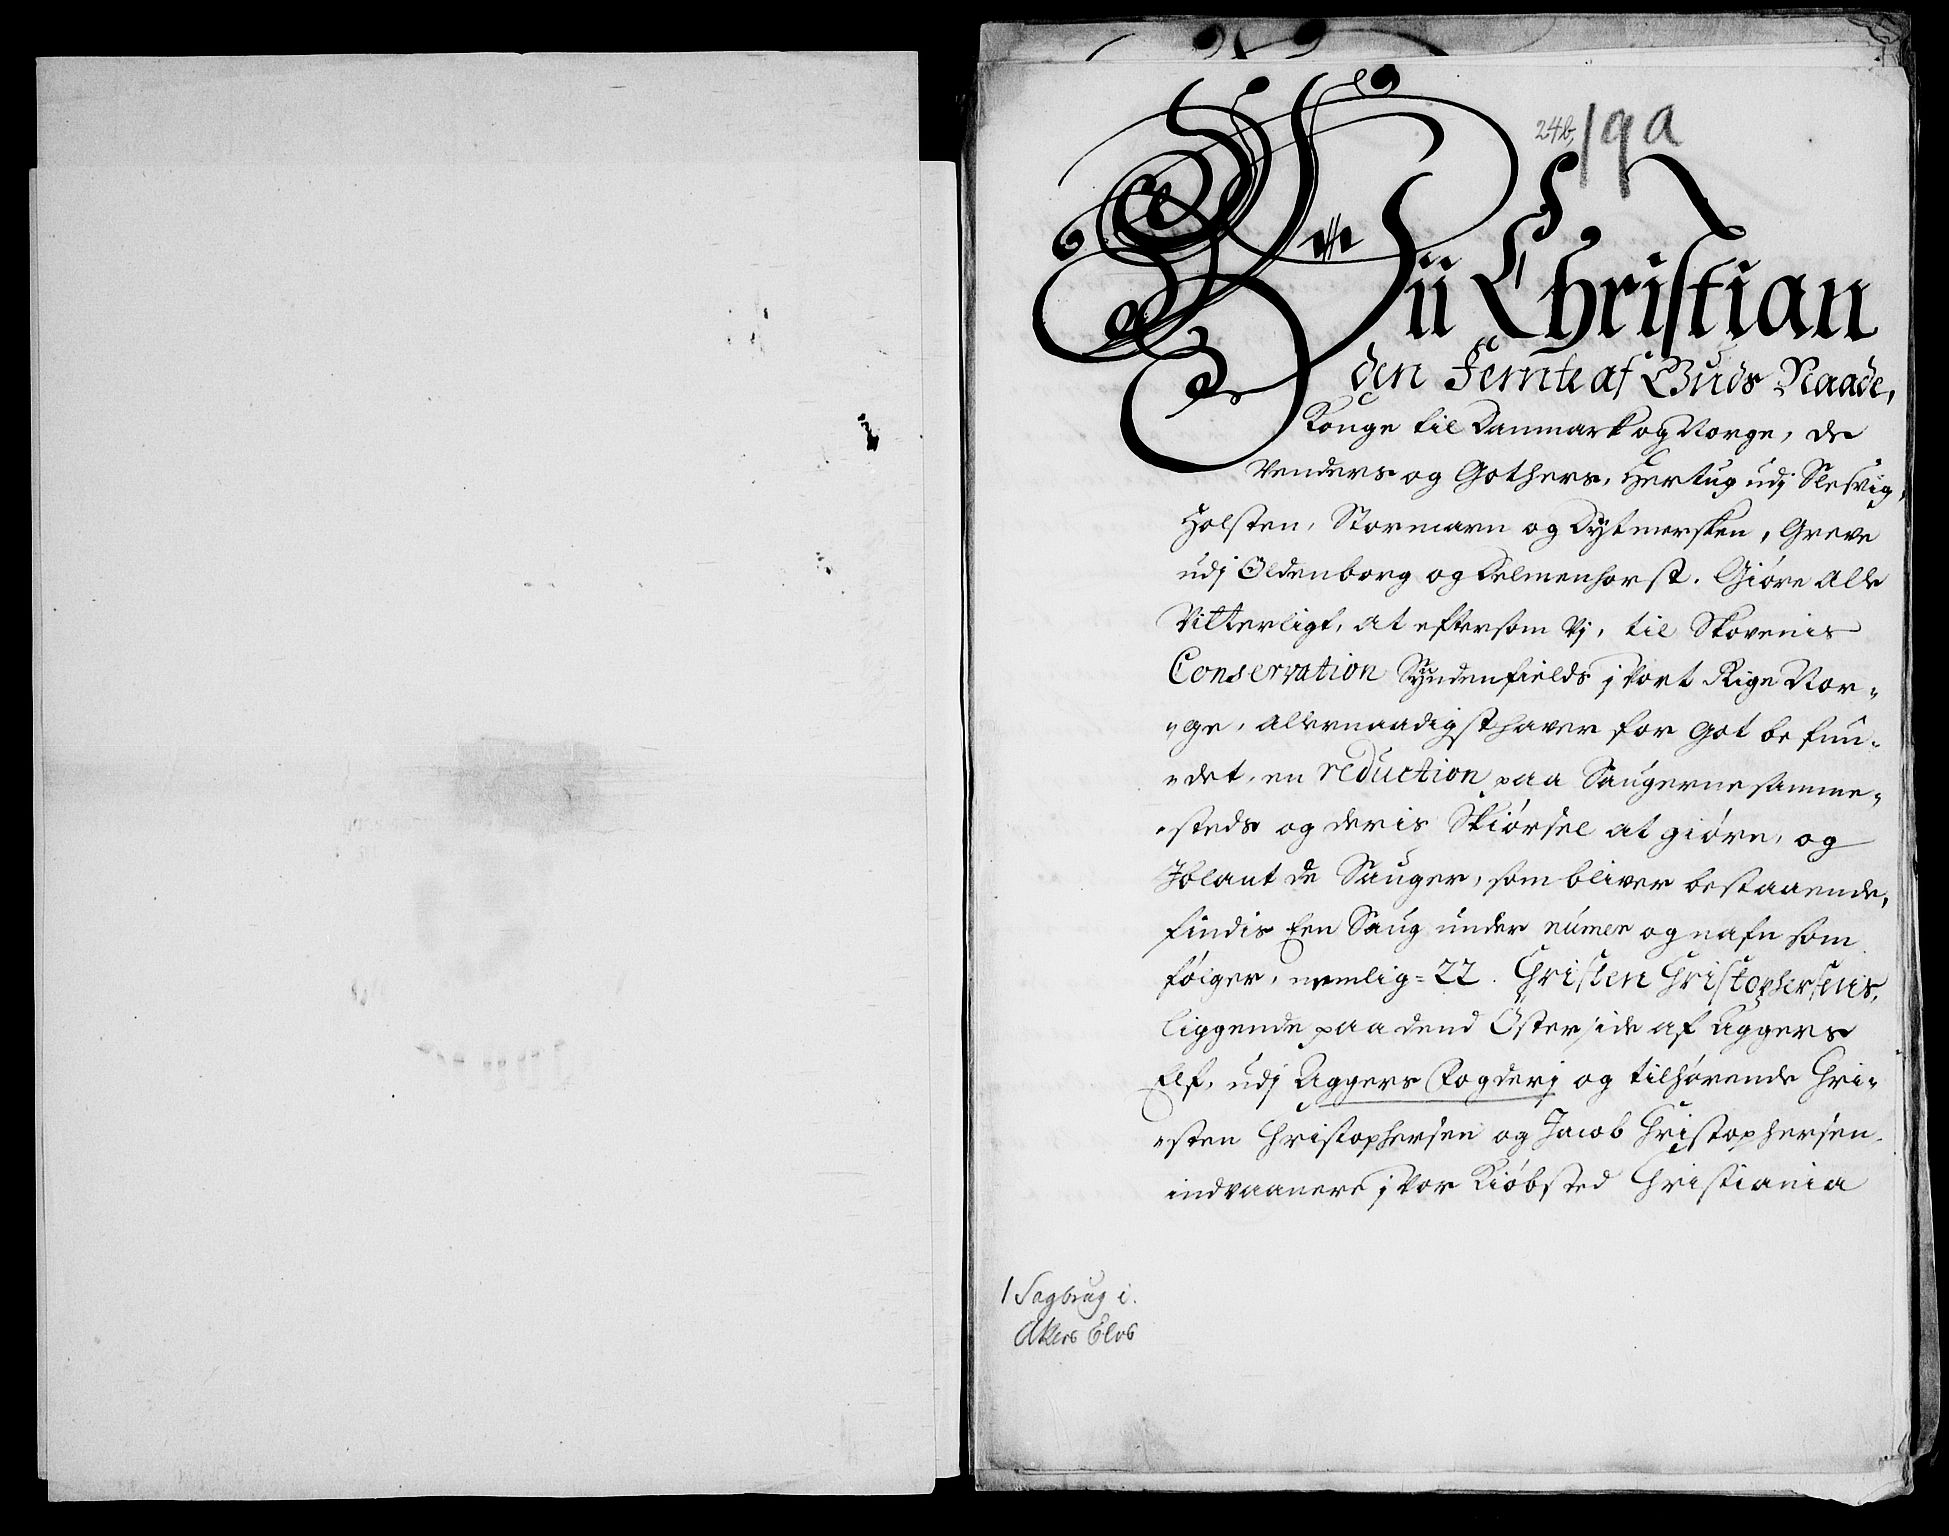 24b, 19a
Vii Christian
den Femte af Guds Naade,
Konge til Danmark og Norge, de
Venders og Gothers, Hertug udj Slesvig,
Holsten, Stormarn og Dytmersken, Greve
udj Oldenborg og Delmenhorst. Giøre Alle
Vitterligt, at eftersom Vj, til Skovenis
Conservation Syndenfields j Vort Rige Nor-
-ge, allernaadigst haver for got befun-
-det, en reduction paa Saugerne samme-
-steds og deris Skiørsel at giøre, og
Jblant de Sauger, som bliver bestaaende,
findis Een Saug under numer og nafn som
følger, nemlig = 22. Christen Christophersens,
liggende paa dend Østerside af Aggers
Elf, udj Aggers Fogderj og tilhørende Chri-
-sten Christophersen og Jacob Christophersen
indvaanere j Vor Kiøbsted Christiania
1 Sagbrug i
Akers Elvs